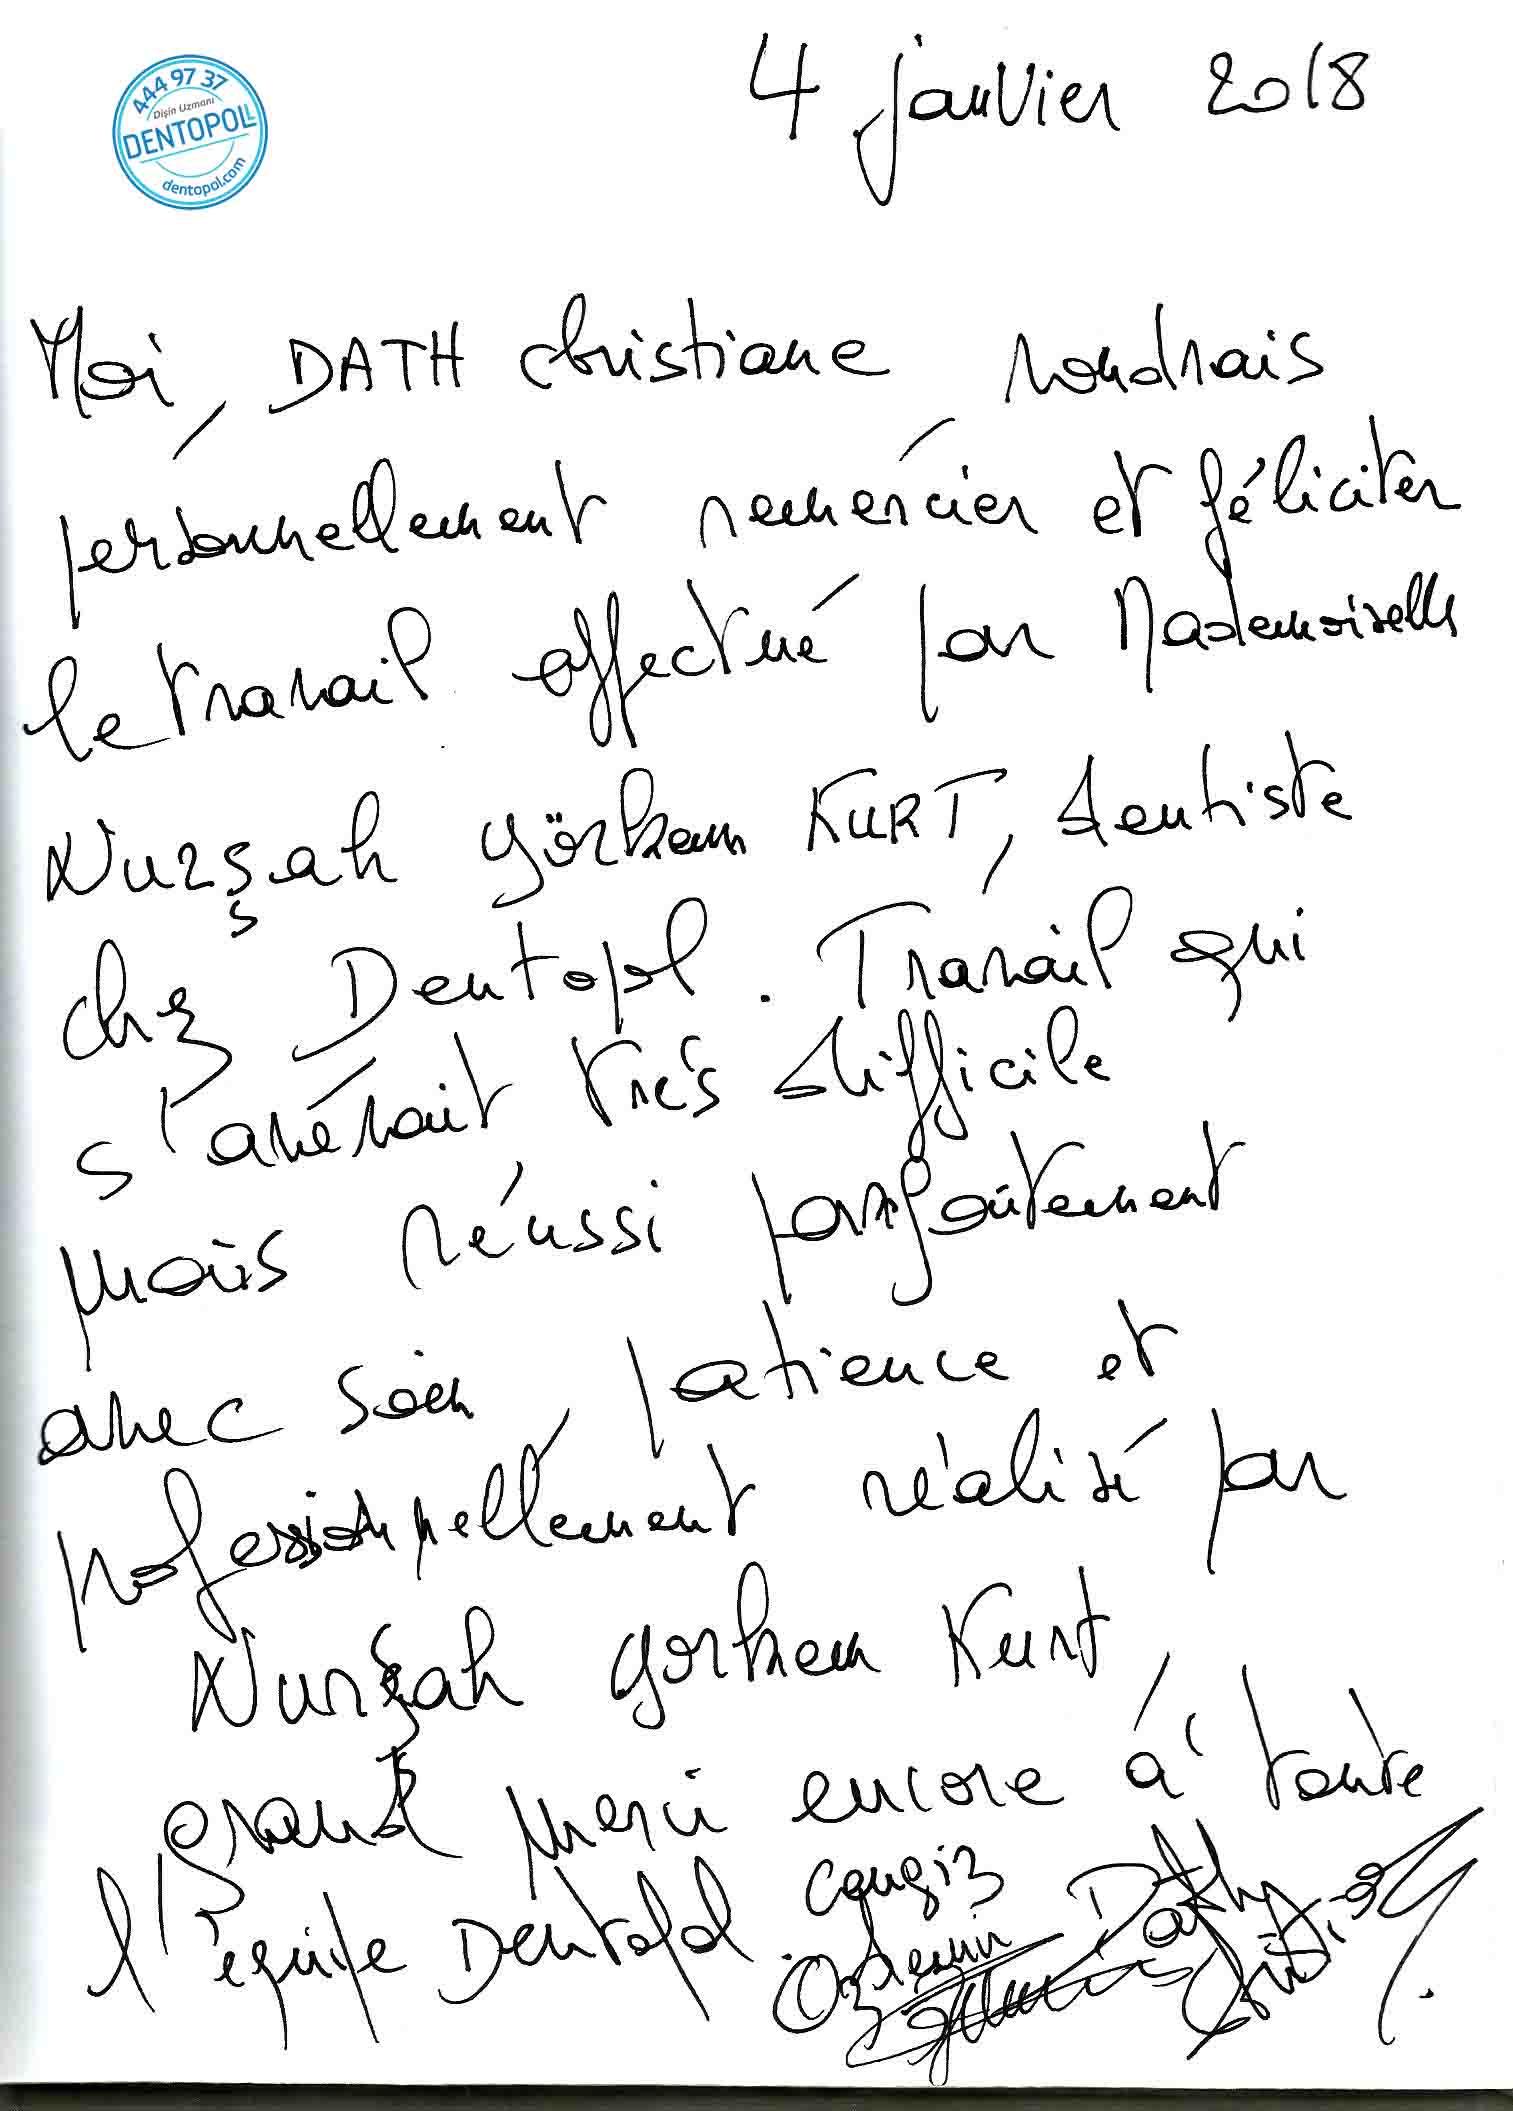 444 97 37
Dişin Uzmanı
DENTOPOL
dentopol.com
4 janvier 2018
Moi, DATH Christiane voudrais
personnellement remercier et féliciter
le travail effectué par Mademoiselle
Nurşah Görkem KURT, dentiste
chez Dentopol. Travail qui
s'avérait très difficile
mais réussi parfaitement
avec soin, patience et
professionnellement réalisé par
Nurşah Gorkem Kurt,
grand merci encore à toute
l'équipe Dentopol
Cengiz
Özdemir
Dath
Christiane